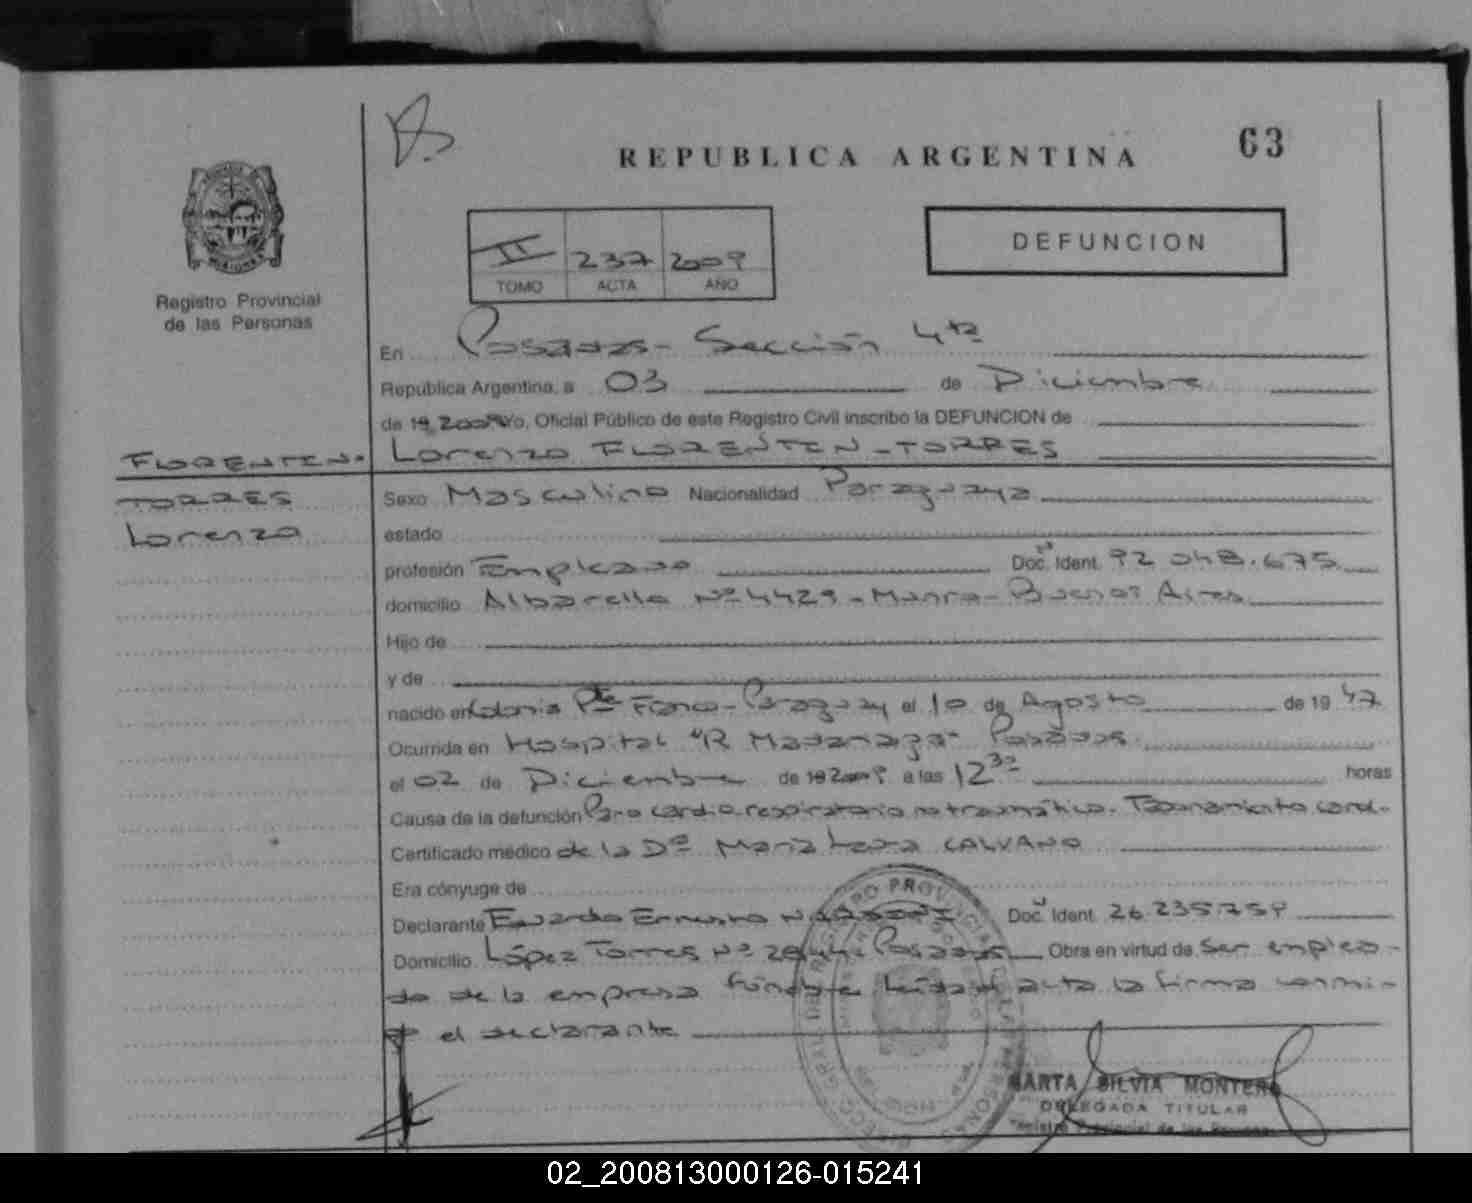 REPUBLICA ARGENTINA
63
II 237 2009
TOMO ACTA AÑO
DEFUNCION
MISIONES
Registro Provincial
de las Personas
En Posadas - Sección 4ta
República Argentina, a 03 de Diciembre
de 19 2009 Yo, Oficial Público de este Registro Civil inscribo la DEFUNCION de
Lorenzo FLORENTIN - TORRES
FLORENTIN -
TORRES
Lorenzo
Sexo Masculino Nacionalidad Paraguaya
estado
profesión Empleado Doc. Ident. 92.048.675
domicilio Albarello Nº 4429 - Munro - Buenos Aires
Hijo de
y de
nacido en Colonia Pte Franco - Paraguay el 10 de Agosto de 19 47
Ocurrida en Hospital "R Madariaga" Posadas
el 02 de Diciembre de 19 2009 a las 12 30 horas
Causa de la defunción Paro cardio respiratorio no traumático. Taponamiento card.
Certificado médico de la Dra María Laura CALVANO
Era cónyuge de
Declarante Eduardo Ernesto Doc. Ident. 26.235.759
Domicilio López Torres Nº Posadas Obra en virtud de Ser emplea-
do de la empresa fúnebre Leída el acta la firma conmi-
go el declarante
MARTA SILVIA MONTERO
DELEGADA TITULAR
Registro Provincial de las Personas
02_200813000126-015241